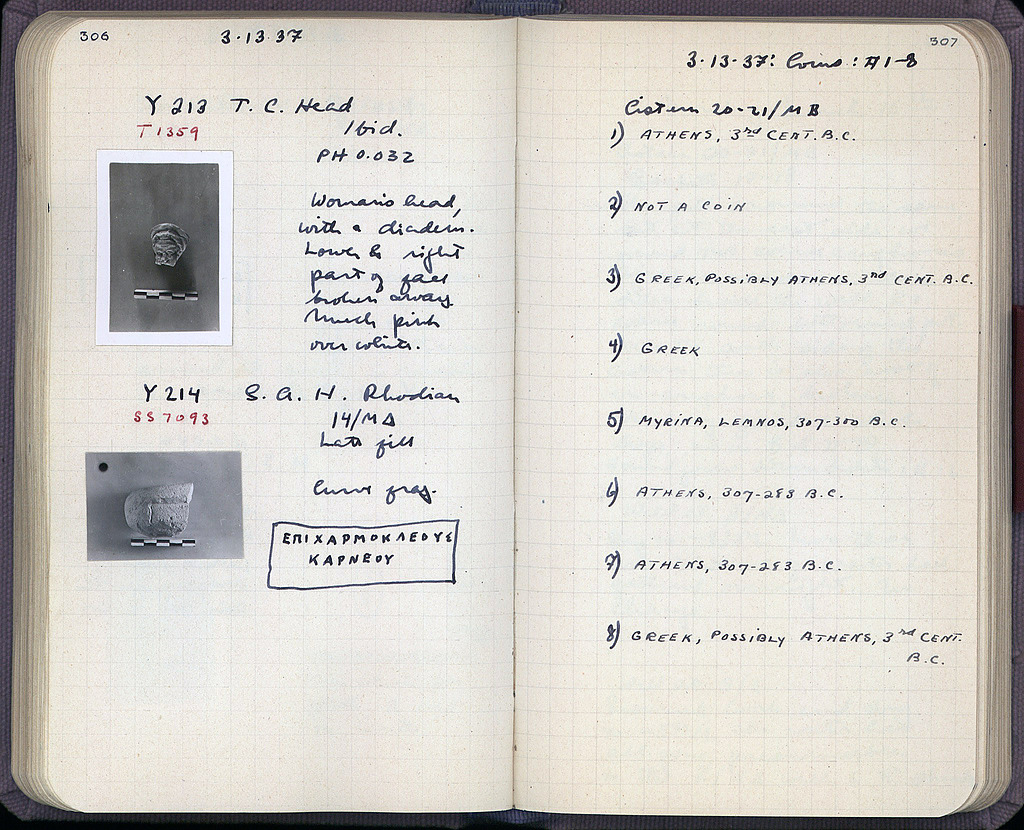 306
3·13·37
Y 213 T. C. Head
T 1359
Ibid.
PH 0.032
Woman's head,
with a diadem.
Lower & right
part of face
broken away
Much pink
over white.
Y 214 S. A. H. Rhodian
SS 7093
14/ΜΔ
Late fill
Curve frag.
ΕΠΙΧΑΡΜΟΚΛΕΥΣ
ΚΑΡΝΕΟΥ
307
3·13·37: Coins: #1-8
Cistern 20-21/ΜΒ
1) ATHENS, 3rd CENT. B.C.
2) NOT A COIN
3) GREEK, POSSIBLY ATHENS, 3rd CENT. B.C.
4) GREEK
5) MYRINA, LEMNOS, 307-300 B.C.
6) ATHENS, 307-283 B.C.
7) ATHENS, 307-283 B.C.
8) GREEK, POSSIBLY ATHENS, 3rd CENT.
B.C.